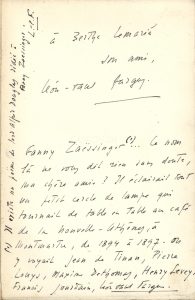 à Berthe Lemarié
son ami,
Léon-Paul Fargue
Fanny Zaessinger (1)... ce nom
là ne vous dit rien sans doute,
ma chère amie ? Il éclairait tout
un petit cercle de lampe qui
tournait de table en table au café
de la Nouvelle-Athènes, à
Montmartre, de 1894 à 1897. On
y voyait Jean de Tinan, Pierre
Louys, Maxime Dethomas, Henry Levey,
Francis Jourdain, Léon-Paul Fargue.
(1) Il existe un poème de Lord Alfred Douglas dédié à
Fanny Zaessinger.
L.-P. F.